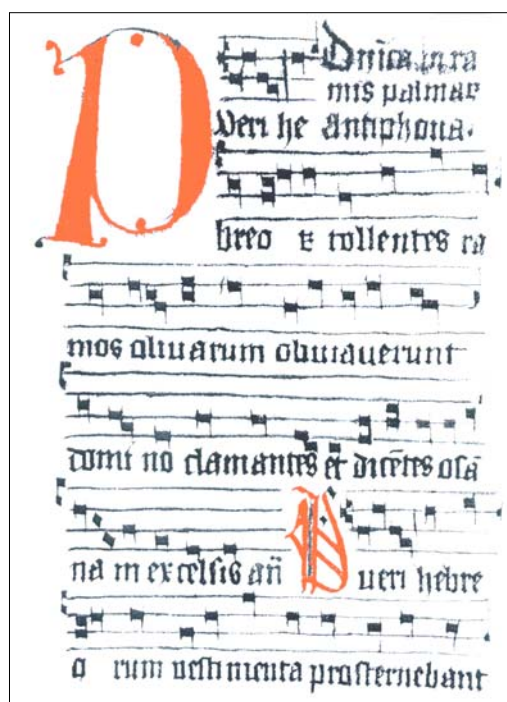 Dnīca in ra
mis palmaꝝ
Pueri he antiphona.
breo ꝝ tollentes ra
mos oliuarum obuiauerunt
domi no clamantes et dicētes osā
na in excelsis añ Pueri hebre
o rum uestimenta prosternebant